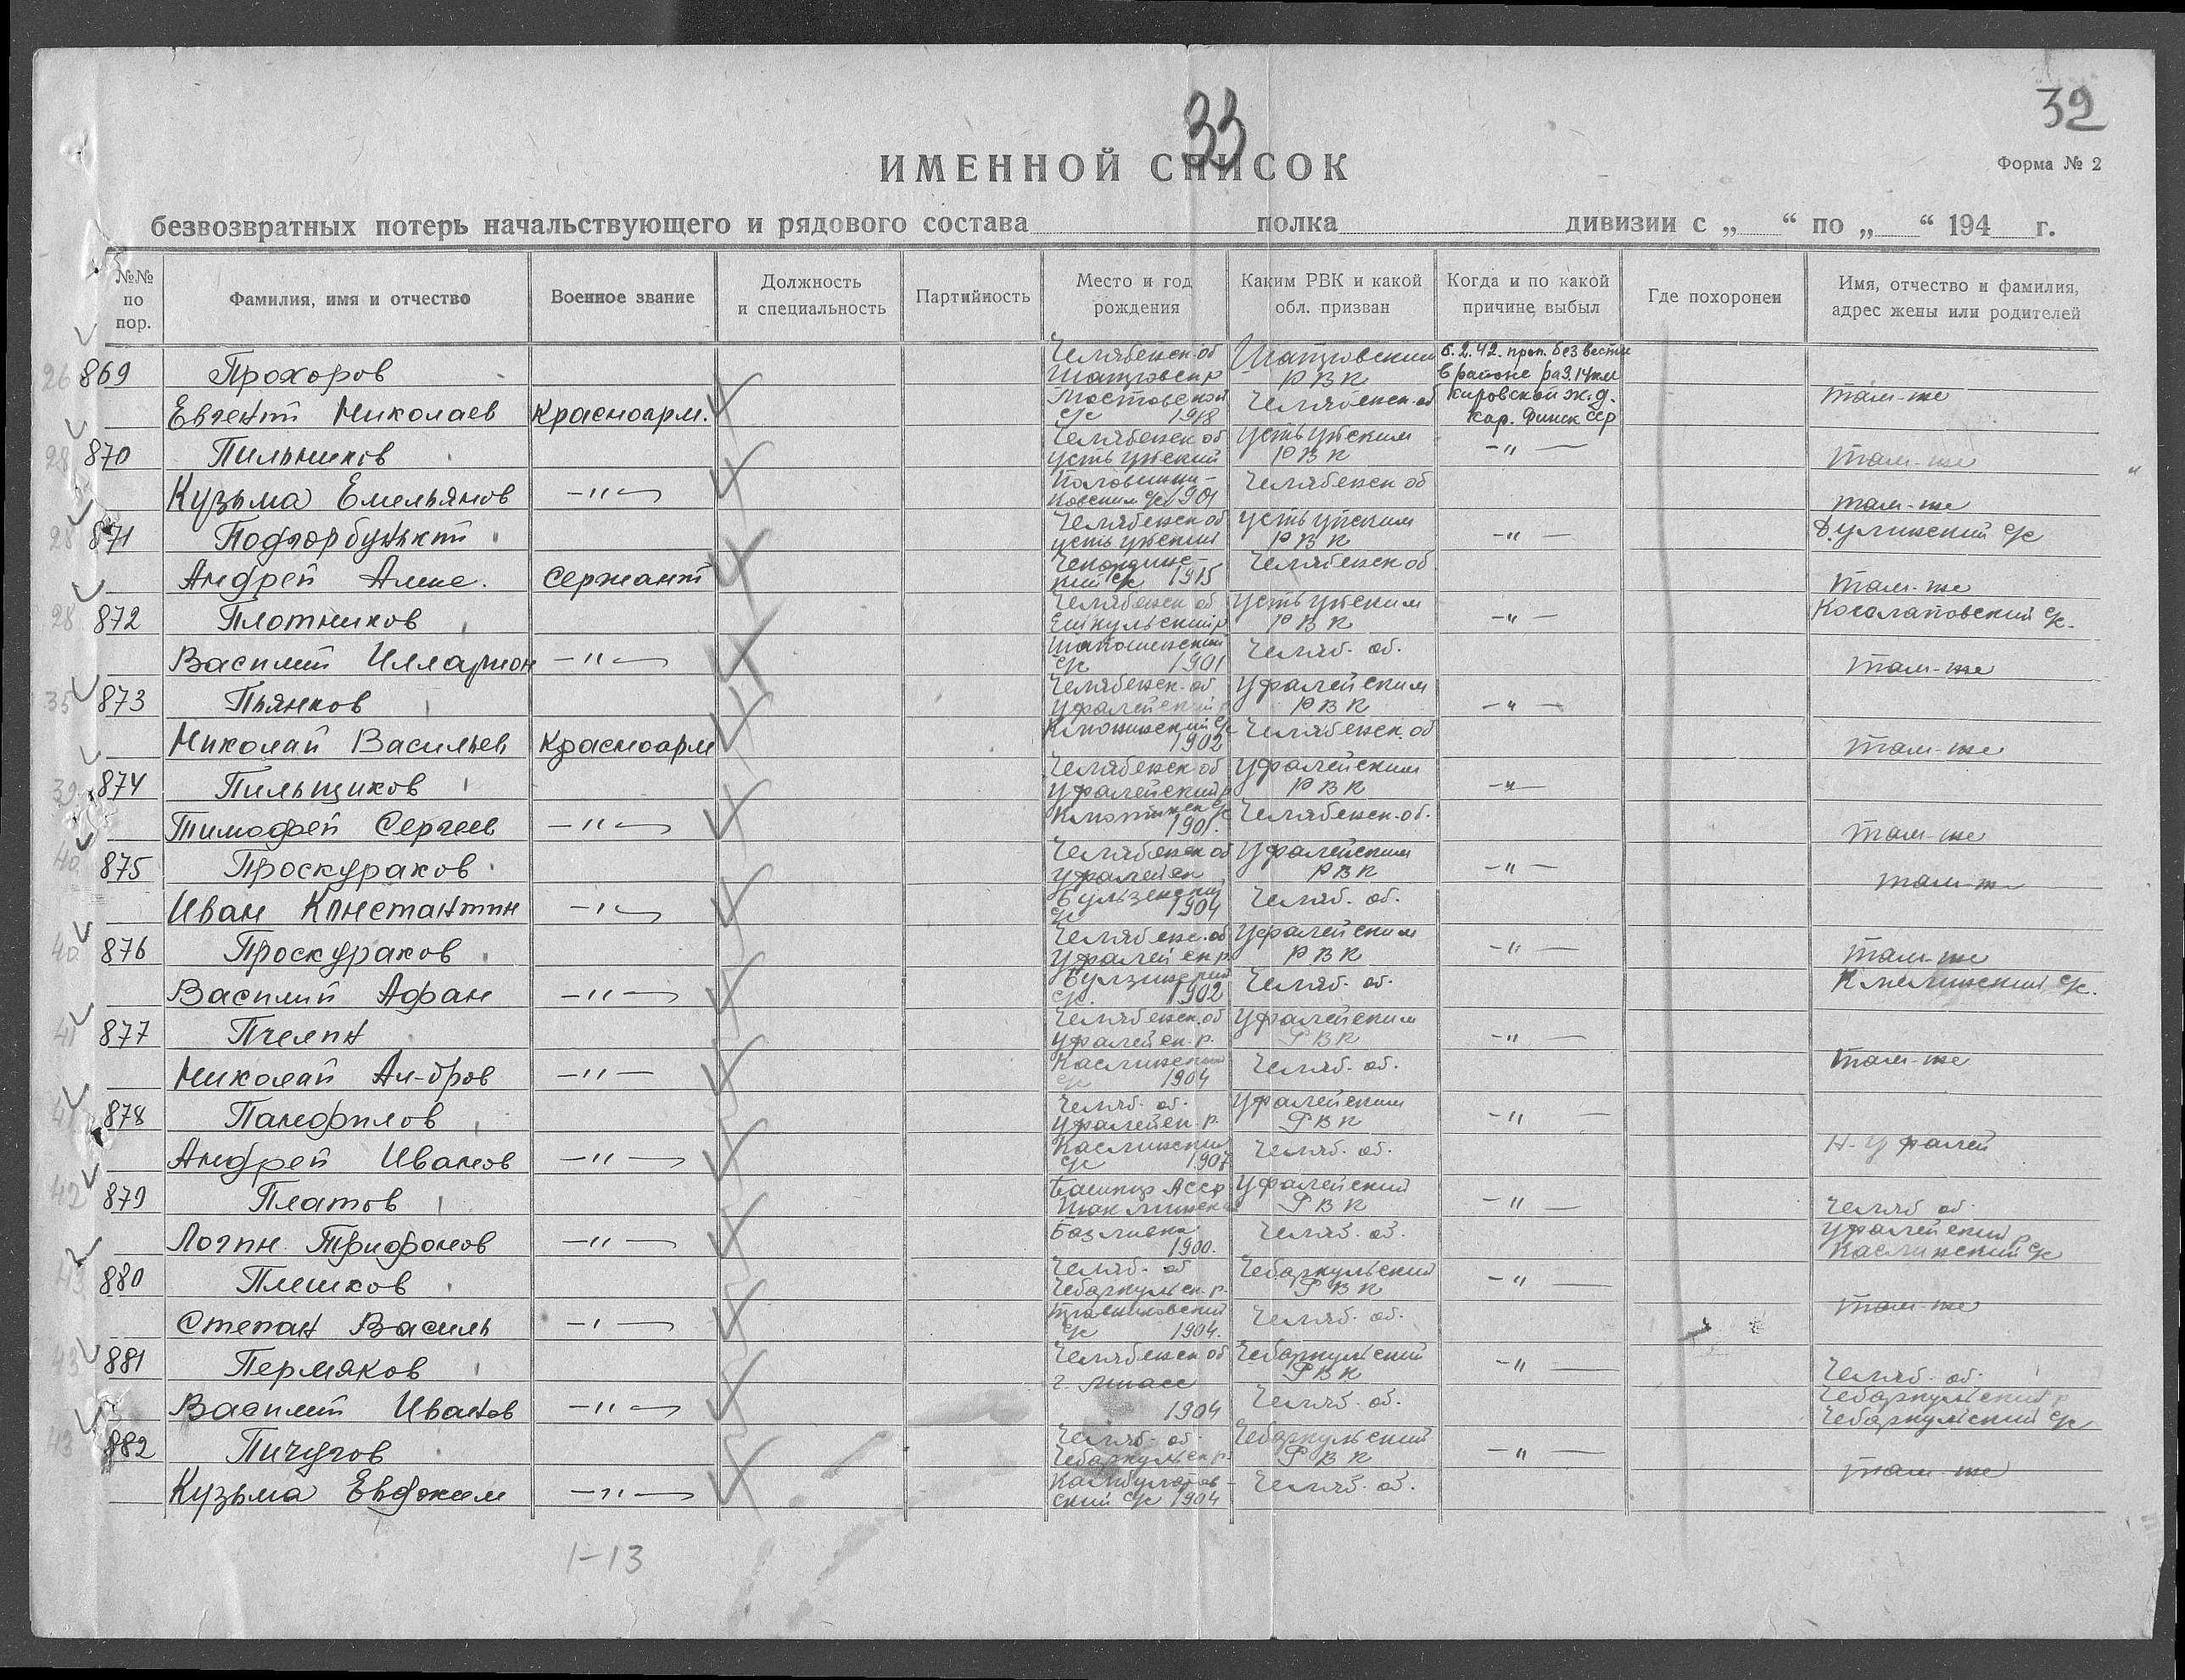 32
33
ИМЕННОЙ СПИСОК
Форма № 2
безвозвратных потерь начальствующего и рядового состава полка дивизии с „ “ по „ “ 194 г.
№№ по пор. Фамилия, имя и отчество Военное звание Должность и специальность Партийность Место и год рождения Каким РВК и какой обл. призван Когда и по какой причине выбыл Где похоронен Имя, отчество и фамилия, адрес жены или родителей
26 869 Прохоров Челябенск-об Шатровским 6.2.42. проп. без вести
РВК в районе раз. 14 км
Евгений Николаев Красноарм. 1918 Челябенск-об Кировской ж.д. там-же
Кар. Финск ССР
28 870 Пильников Челябенск об Усть уйским -"-
усть уйский РВК там-же
Кузьма Емельянов -"- 1901 Челябенск об
там-же
28 871 Подгорбунский Челябенск об усть уйским -"-
усть уйский РВК
Андрей Алекс. Сержант 1915 Челябенск об
там-же
28 872 Плотников Челябенск об усть уйским -"-
РВК
Василий Илларион -"- 1901 Челяб. об. там-же
35 873 Пьянков Челябенск-об Уфалейским -"-
Уфалейский р РВК
Николай Васильев Красноарм 1902 Челябенск. об там-же
39 874 Пильщиков Челябенск об Уфалейским -"-
Уфалейский р РВК
Тимофей Сергеев -"- 1901. Челябенск. об. там-же
40 875 Проскураков Челябенск об Уфалейским -"-
РВК там-ж
Иван Константин -"- 1904 Челяб. об.
с/с
40 876 Проскураков Челябенс. об Уфалейским -"-
Уфалейск р РВК там-же
Василий Афан -"- Булзинский 1902 Челяб. об.
с/с.
41 877 Пчелин Челябенск. об Уфалейским -"-
Уфалейск. р. РВК
Николай Ал-дров -"- Каслинский 1904 Челяб. об. там-же
с/с
41 878 Панфилов Челяб. об. Уфалейским -"-
Уфалейск. р. РВК
Андрей Иванов -"- Каслинский 1907 Челяб. об. Н-Уфалей
с/с
42 879 Платов Башкир АССР Уфалейский -"-
РВК Челяб об.
Логин Трифонов -"- 1900. Челяб. об. Уфалейский р
Каслинский с/с
43 880 Плешков Челяб. об Чебаркульский -"-
Чебаркульск. р. РВК
Степан Василь -"- 1904. Челяб. об. там-же
с/с
43 881 Пермяков Челябенск об Чебаркульский -"-
г. Миасс РВК Челяб. об.
Василий Иванов -"- 1904 Челяб. об. Чебаркульский р
Чебаркульский с/с
43 882 Пичугов Челяб. об. Чебаркульский -"-
Чебаркульск р. РВК
Кузьма Евдоким -"- Камбулатов- Челяб. об. там-же
ский с/с 1904
1-13